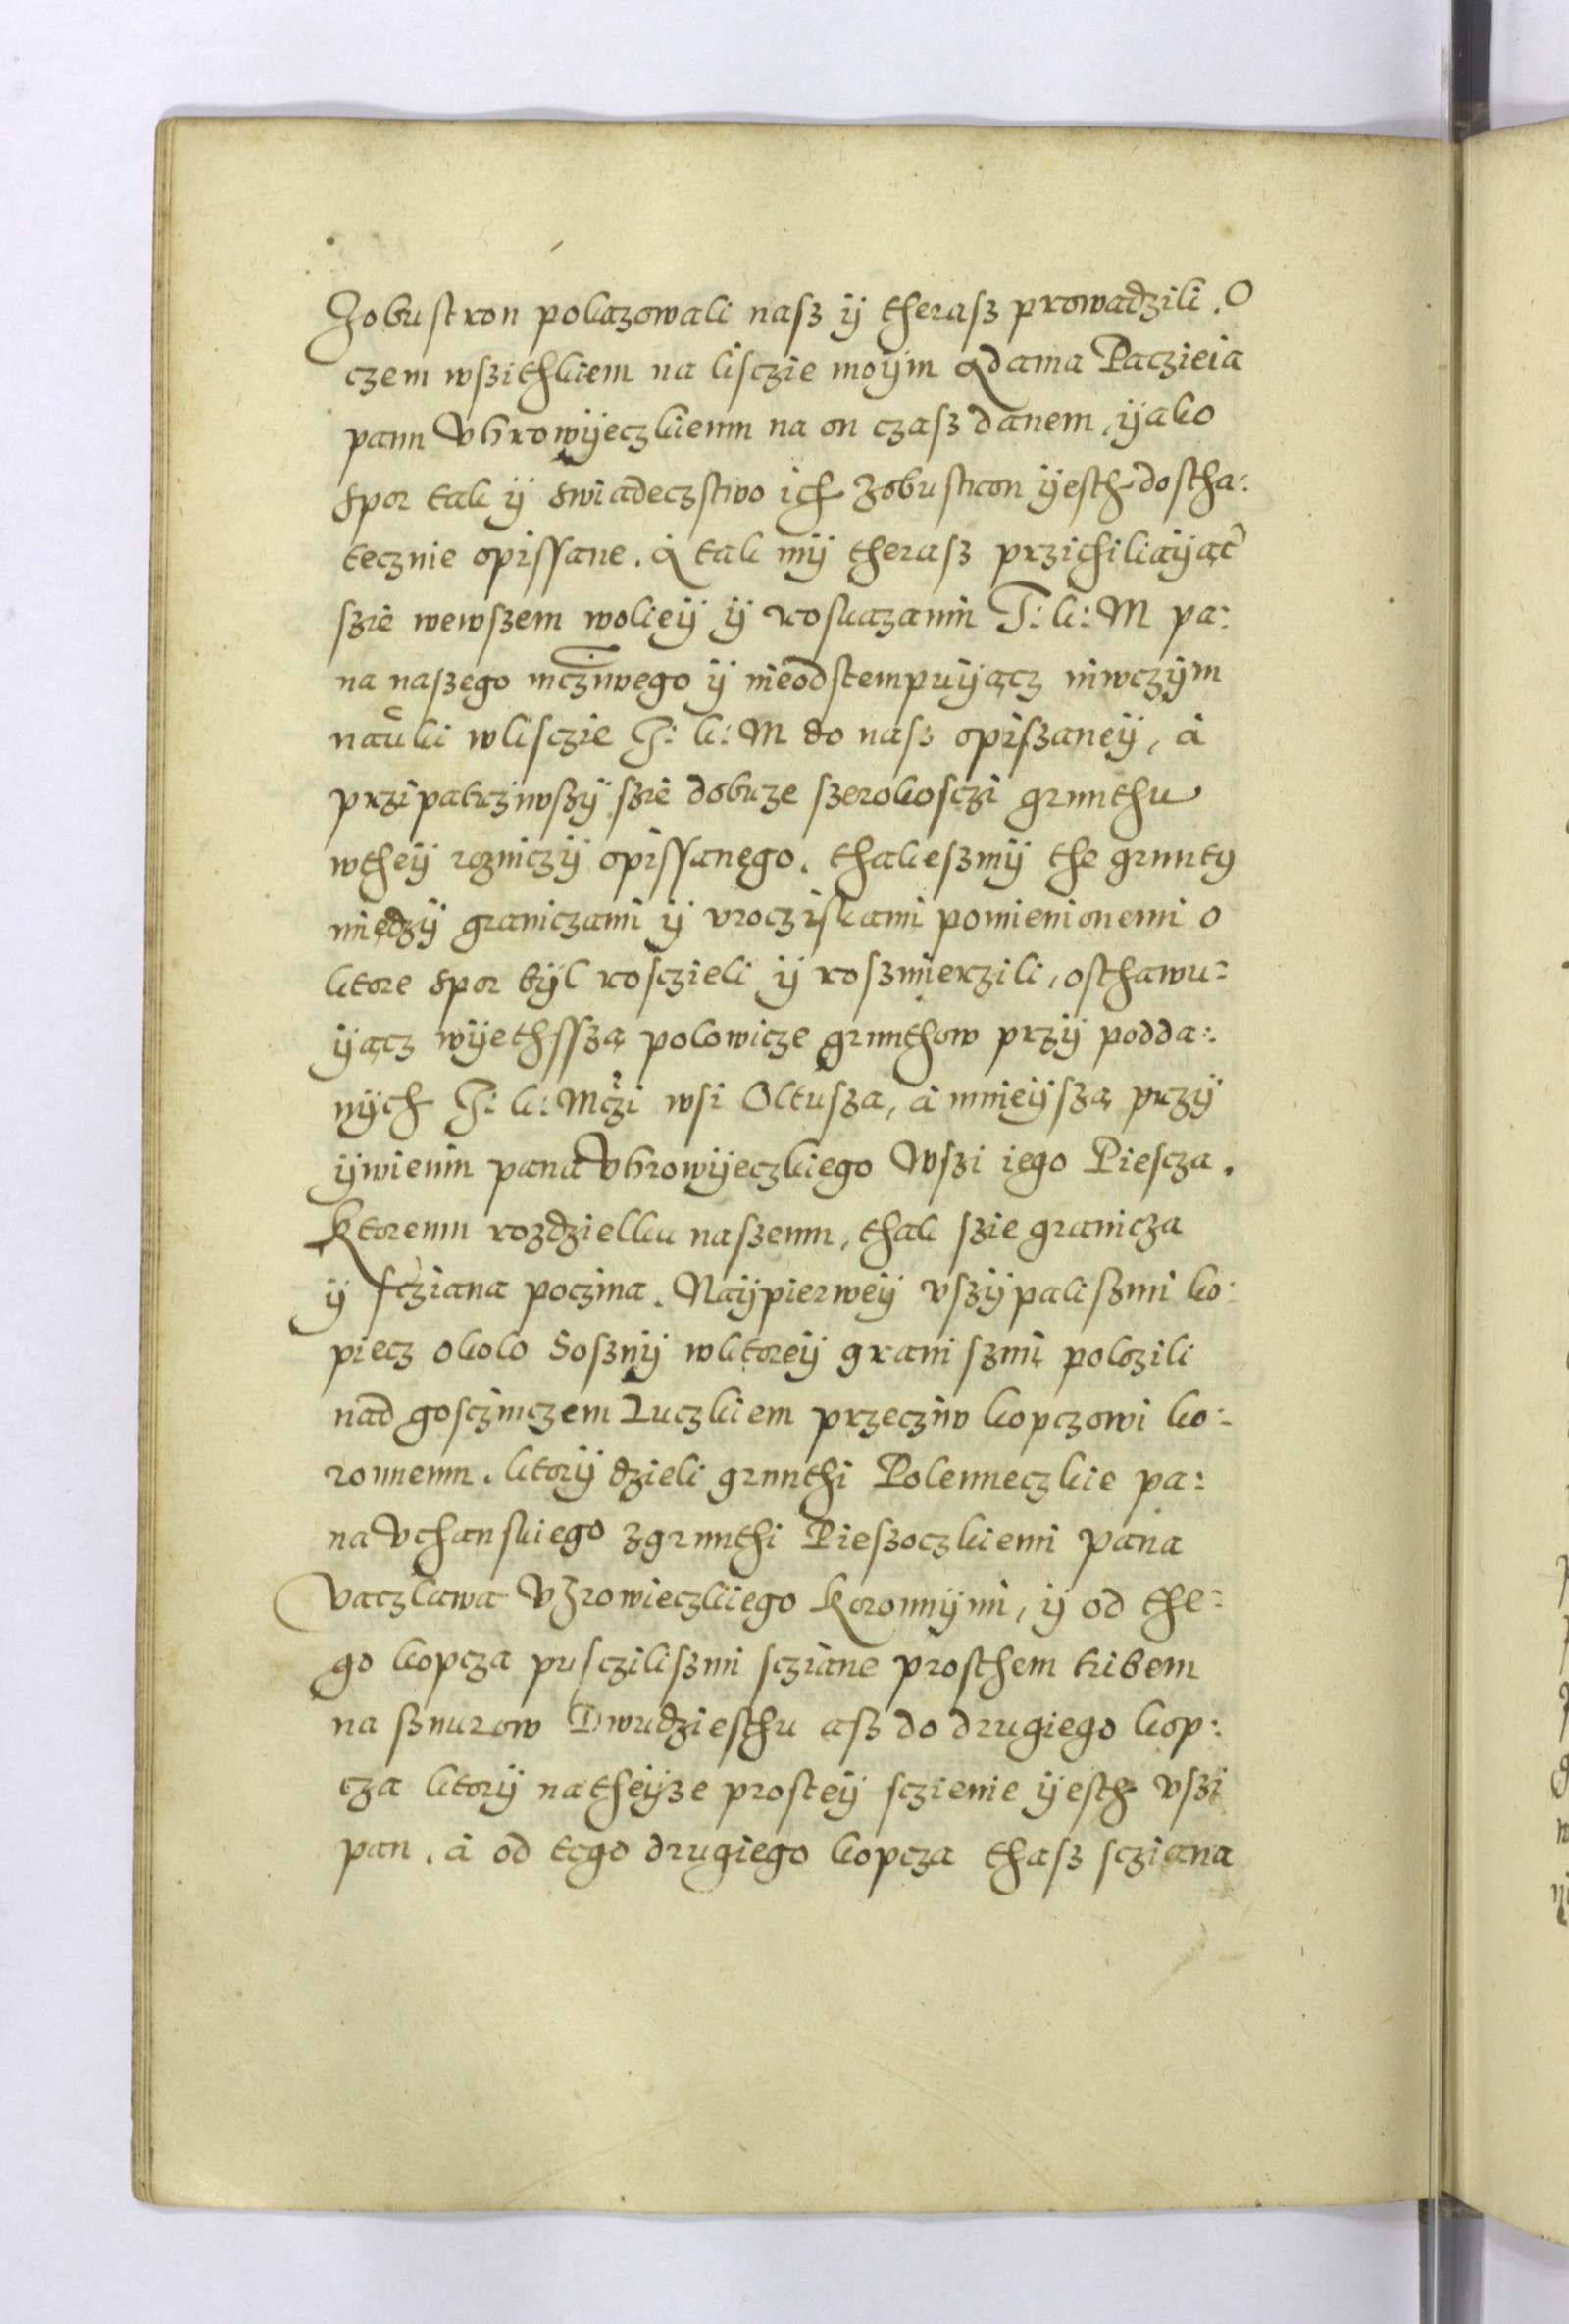 Zobustron pokazowali nasz ÿ therasz prowadzili. O
czem wszithkiem na lisczie moÿm Adama Paczieia
panu Vhrowÿeczkiemu na on czasz danem, ÿako
spor tak ÿ swiadecztwo ich zobustron ÿesth dostha:
tecznie opissane. A tak mÿ therasz przichiliaÿąc
szie wewszem woliey ÿ roskazaniu J: k: M pa:
na naszego mcziwego ÿ nieodstempuÿącz niwczÿm
nauki wlisczie J: k: M do nasz opiszaneÿ, a
przipatrziwszÿ szie dobrze szerokosczi grunthu
wtheÿ rozniczÿ opissanego. thakieszmÿ the grunty
miedzÿ graniczami ÿ vrocziskami pomienionemi o
ktore spor bÿl rosczieli ÿ roszmierzili, osthawu:
ÿącz wÿethssza polowicze grunthow przÿ podda:
nÿch J: k: Mczi wsi Oltusza, a mnieÿsza przÿ
ÿmieniu pana Vhrowÿeczkiego Wszi iego Piescza.
Ktoremu rozdzielku naszemu, thak szie granicza
ÿ scziana poczina. Naÿpierweÿ vszÿpaliszmi ko:
piecz okolo Sosznÿ wktoreÿ grani szmi polozili
nad gosczinczem Luczkiem przecziw kopczowi ko:
ronnemu. ktorÿ dzieli grunthi Polemneczkie pa:
na Vchanskiego zgrunthi Pieszoczkiemi pana
Vaczlawa Vhrowieczkiego Koronnÿmi, ÿ od the:
go kopcza puscziliszmi scziane prosthem tribem
na sznurow Dwudziesthu asz do drugiego kop:
cza ktorÿ natheÿze prosteÿ sczienie ÿesth vszi
pan. a od tego drugiego kopcza thasz scziana